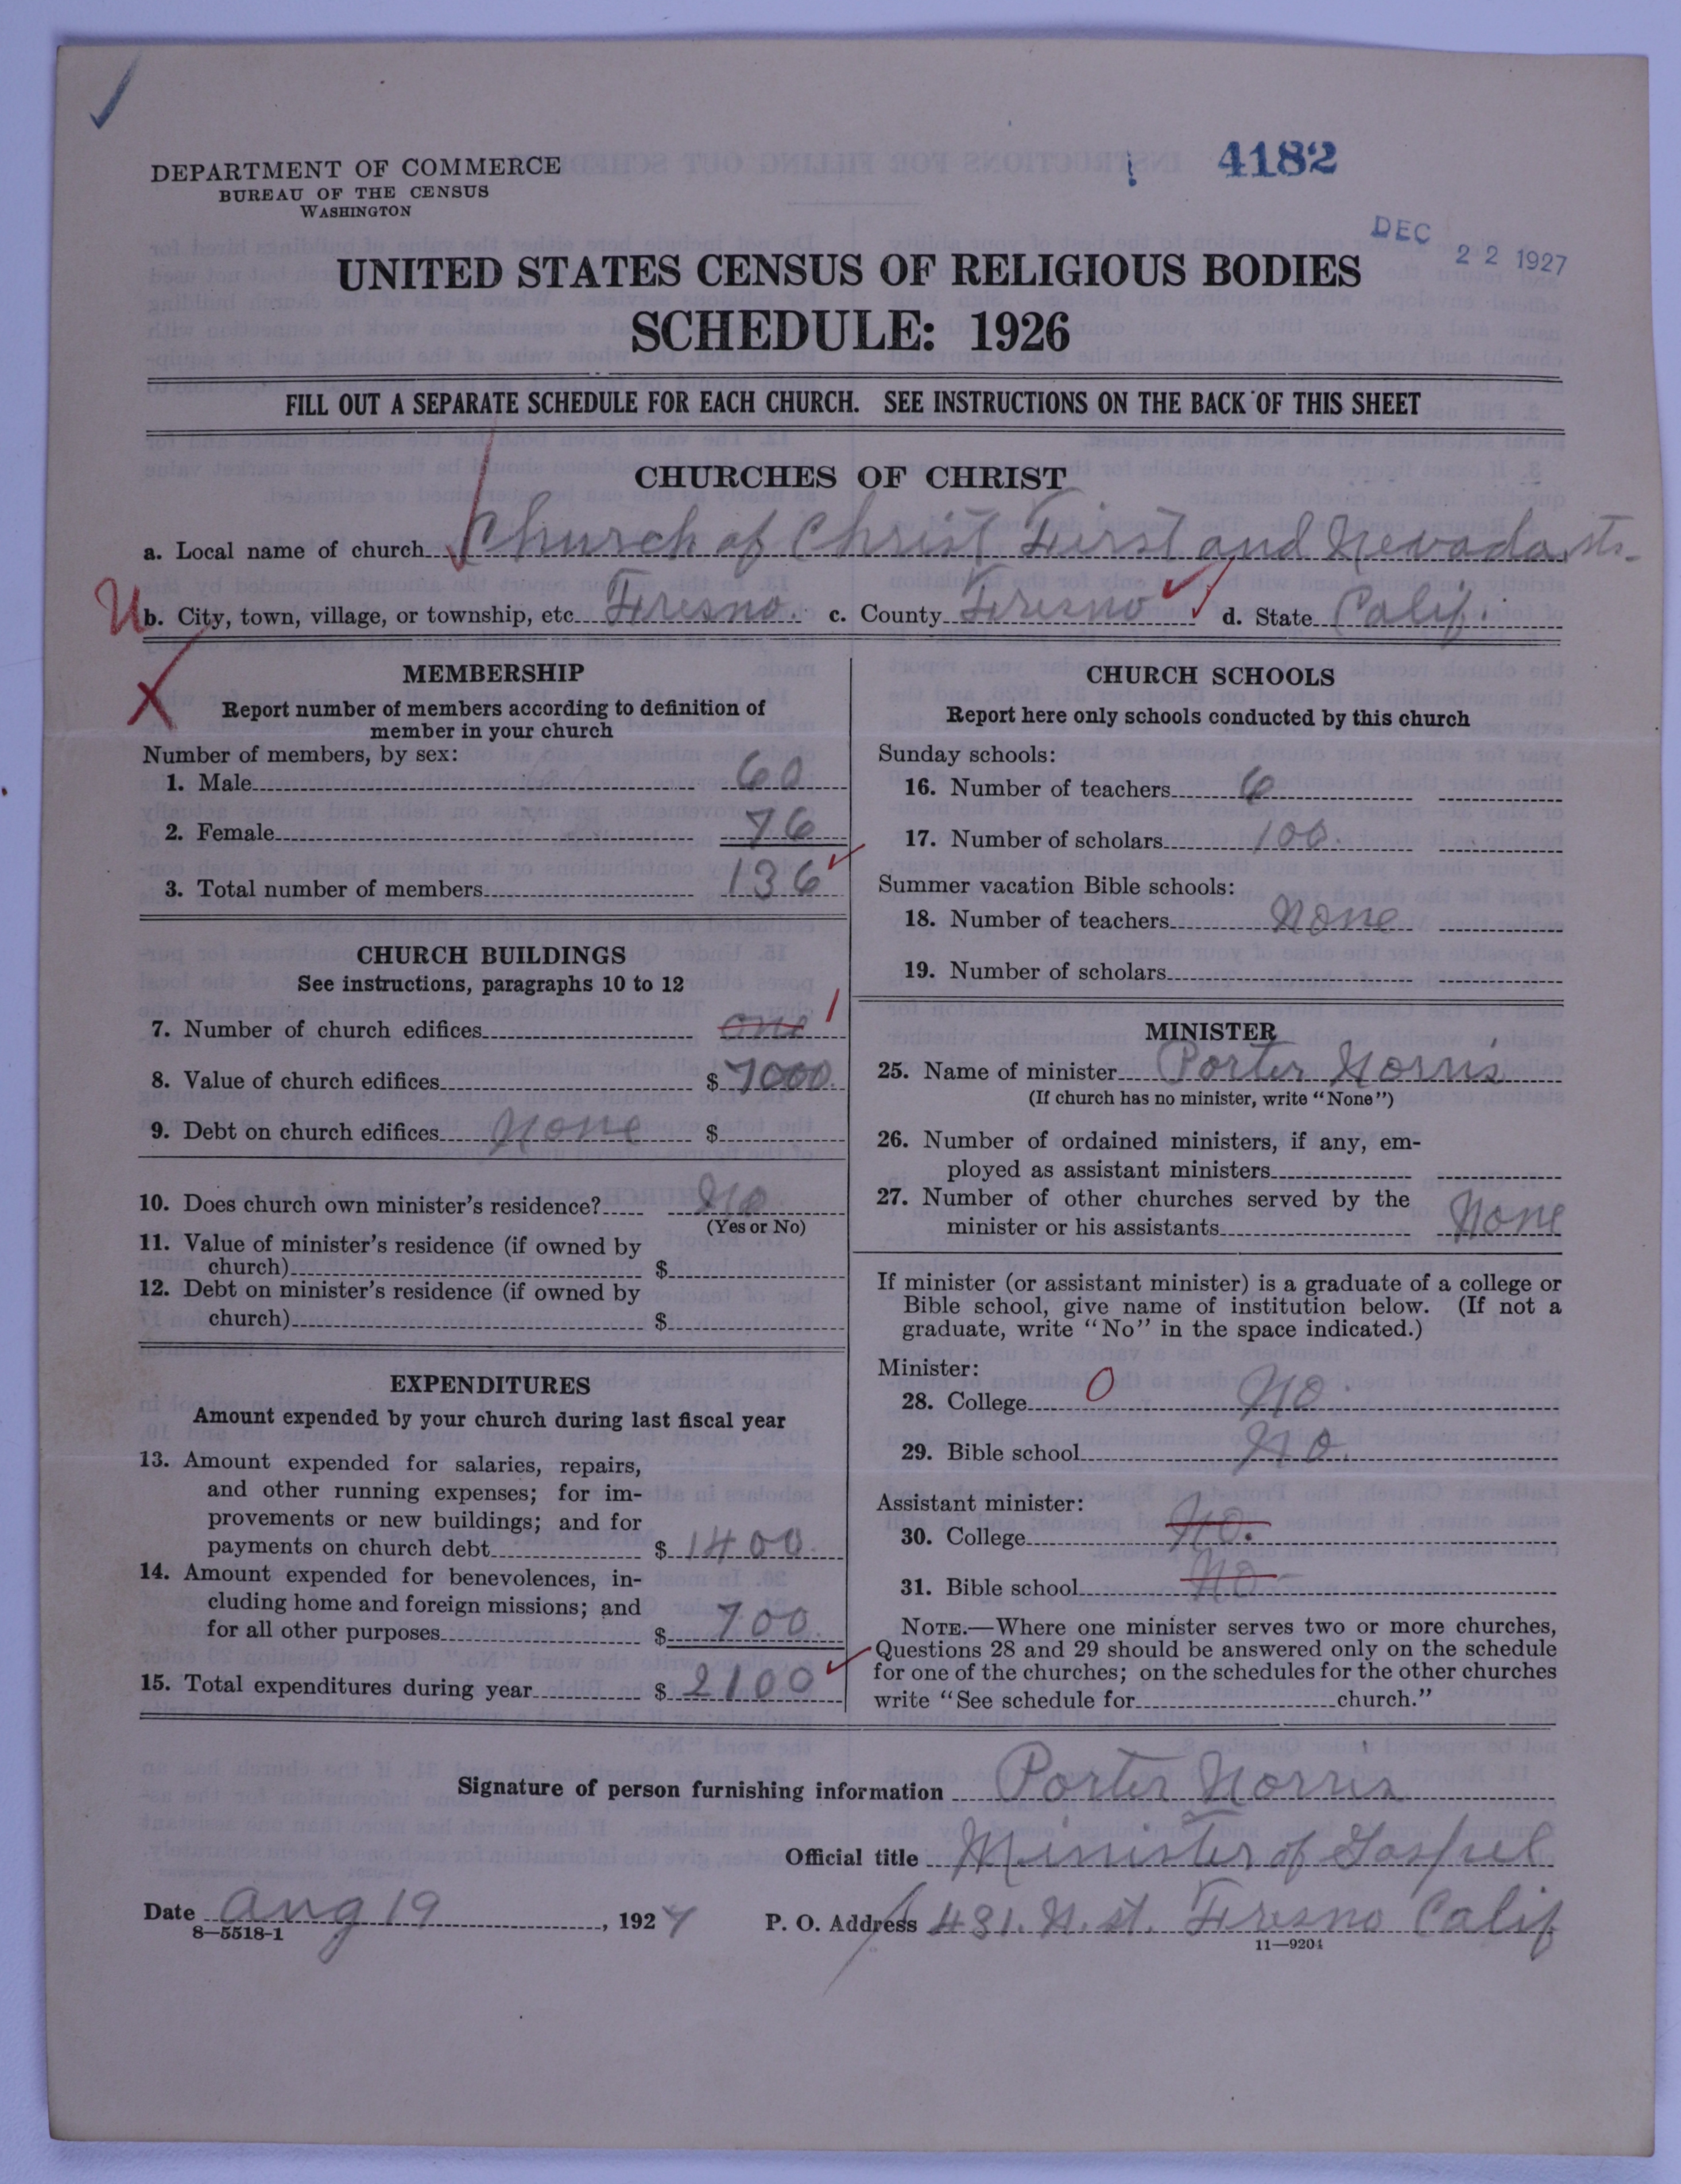 4182
DEPARTMENT OF COMMERCE
BUREAU OF THE CENSUS
WASHINGTON
DEC 22 1927
UNITED STATES CENSUS OF RELIGIOUS BODIES
SCHEDULE: 1926
FILL OUT A SEPARATE SCHEDULE FOR EACH CHURCH. SEE INSTRUCTIONS ON THE BACK OF THIS SHEET
CHURCHES OF CHRIST
a. Local name of church Church of Christ First and Nevada sts.
U b. City, town, village, or township, etc. Fresno. c. County Fresno d. State Calif.
MEMBERSHIP
Report number of members according to definition of
member in your church
Number of members, by sex:
1. Male 60
2. Female 76
3. Total number of members 136
CHURCH BUILDINGS
See instructions, paragraphs 10 to 12
7. Number of church edifices one 1
8. Value of church edifices $ 7000.
9. Debt on church edifices None $
10. Does church own minister's residence? No
(Yes or No)
11. Value of minister's residence (if owned by
church) $
12. Debt on minister's residence (if owned by
church) $
EXPENDITURES
Amount expended by your church during last fiscal year
13. Amount expended for salaries, repairs,
and other running expenses; for im-
provements or new buildings; and for
payments on church debt $ 1400.
14. Amount expended for benevolences, in-
cluding home and foreign missions; and
for all other purposes $ 700.
15. Total expenditures during year $ 2100
CHURCH SCHOOLS
Report here only schools conducted by this church
Sunday schools:
16. Number of teachers 6
17. Number of scholars 100.
Summer vacation Bible schools:
18. Number of teachers None
19. Number of scholars
MINISTER
25. Name of minister Porter Norris
(If church has no minister, write "None")
26. Number of ordained ministers, if any, em-
ployed as assistant ministers
27. Number of other churches served by the
minister or his assistants None
If minister (or assistant minister) is a graduate of a college or
Bible school, give name of institution below. (If not a
graduate, write "No" in the space indicated.)
Minister:
28. College 0 No.
29. Bible school No.
Assistant minister:
30. College No.
31. Bible school No
NOTE.—Where one minister serves two or more churches,
Questions 28 and 29 should be answered only on the schedule
for one of the churches; on the schedules for the other churches
write "See schedule for church."
Signature of person furnishing information Porter Norris
Official title Minister of Gospel
Date Aug 19, 1927 P. O. Address 1481. N. st. Fresno Calif
8—5518-1
11—9204